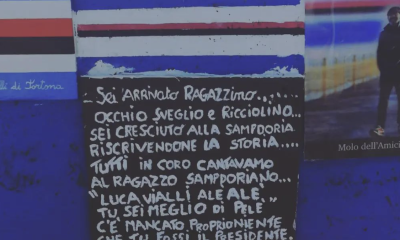 Sei ARRIVATO RAGAZZINO......
OCCHIO SVEGLIO e RICCIOLINO...
SEI CRESCIUTO ALLA SAMPDORIA
RISCRIVENDONE LA STORIA....
TUTTI IN CORO CANTAVAMO
AL RAGAZZO SAMPDORIANO...
"LUCA VIALLI ALE ALE'
TU SEI MEGLIO DI PELE'
C'È MANCATO PROPRIONIENTE
CHE TU FOSSI IL PRESIDENTE.
li di Fortuna
Molo dell'Amici